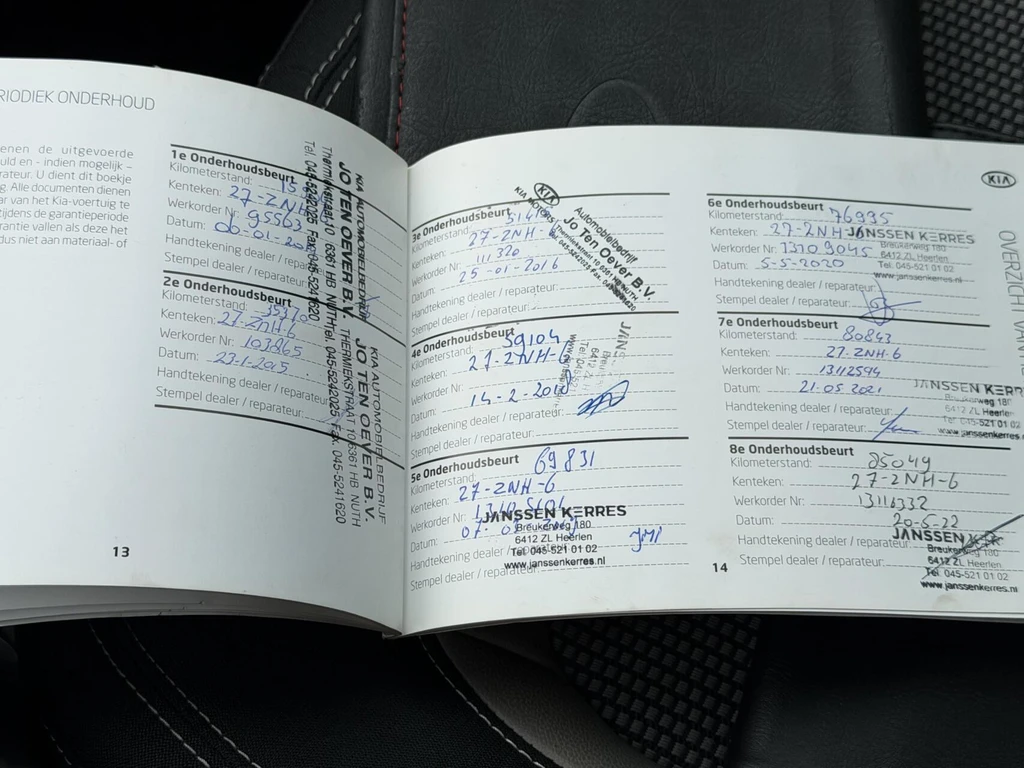 RIODIEK ONDERHOUD
enen de uitgevoerde
uld en - indien mogelijk –
rateur. U dient dit boekje
g. Alle documenten dienen
ar van het Kia-voertuig te
tijdens de garantieperiode
rantie vallen als deze het
dus niet aan materiaal- of
1e Onderhoudsbeurt
Kilometerstand:
Kenteken: 27-ZNH
Werkorder Nr: 95563
Datum: 06-01-201
Handtekening dealer / repara
Stempel dealer / reparateur:
2e Onderhoudsbeurt
Kilometerstand: 35370
Kenteken: 27-ZNH-6
Werkorder Nr: 103865
Datum: 23-1-2015
Handtekening dealer / reparateur:
Stempel dealer / reparateur:
KIA AUTOMOBIELBEDRIJF
JO TEN OEVER B.V.
Thermiekstraat 10 6361 HB NUTH
Tel. 045-5242025 Fax. 045-5241620
KIA AUTOMOBIELBEDRIJF
JO TEN OEVER B.V.
THERMIEKSTRAAT 10 6361 HB NUTH
Tel. 045-5242025 Fax. 045-5241620
13
3e Onderhoudsbeurt
Kilometerstand:
Kenteken: 27-ZNH-6
Werkorder Nr: 111320
Datum: 25-01-2016
Handtekening dealer / reparateur:
Stempel dealer / reparateur:
KIA
KIA MOTORS
Automobielbedrijf
Jo Ten Oever B.V.
4e Onderhoudsbeurt
Kilometerstand: 59104
Kenteken: 27-ZNH-6
Werkorder Nr:
Datum: 14-2-2018
Handtekening dealer / reparateur:
Stempel dealer / reparateur:
JANS
5e Onderhoudsbeurt
Kilometerstand: 69831
Kenteken: 27-ZNH-6
Werkorder Nr:
Datum:
Handtekening dealer / reparateur:
Stempel dealer / reparateur:
JANSSEN KERRES
Breukerweg 180
6412 ZL Heerlen
Tel. 045-521 01 02
www.janssenkerres.nl
KIA
OVERZICHT VAN
6e Onderhoudsbeurt
Kilometerstand: 76935
Kenteken: 27-ZNH
Werkorder Nr: 13109045
Datum: 5-5-2020
Handtekening dealer / reparateur:
Stempel dealer / reparateur:
JANSSEN KERRES
Breukerweg 180
6412 ZL Heerlen
Tel. 045-521 01 02
www.janssenkerres.nl
7e Onderhoudsbeurt
Kilometerstand: 80843
Kenteken: 27-ZNH-6
Werkorder Nr: 13112594
Datum: 21-05-2021
Handtekening dealer / reparateur:
Stempel dealer / reparateur:
JANSSEN KERR
Breukerweg 180
6412 ZL Heerlen
Tel. 045-521 01 02
www.janssenkerres
8e Onderhoudsbeurt
Kilometerstand: 85049
Kenteken: 27-ZNH-6
Werkorder Nr: 13116332
Datum: 20-5-22
Handtekening dealer / reparateur:
Stempel dealer / reparateur:
JANSSEN KER
Breukerweg 180
6412 ZL Heerlen
Tel. 045-521 01 02
www.janssenkerres.nl
14